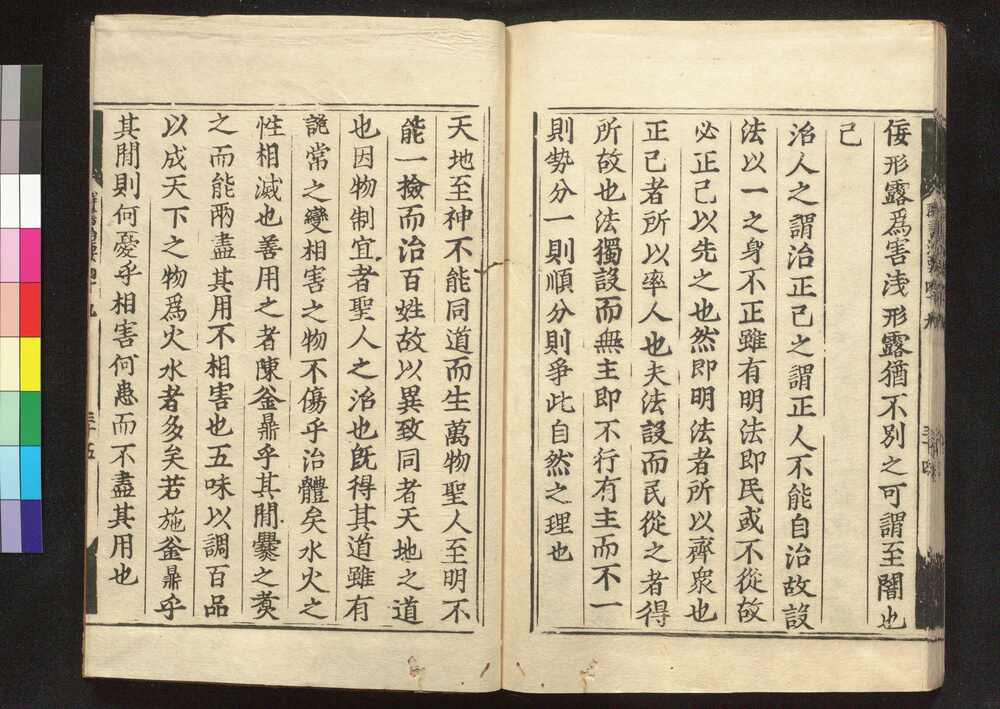 佞形露為害浅形露猶不別之可謂至闇也
已
治人之謂治正己之謂正人不能自治故設
法以一之身不正雖有明法即民或不從故
必正己以先之也然即明法者所以齊衆也
正己者所以率人也夫法設而民從之者得
所故也法獨設而無主即不行有主而不一
則勢分一則順分則爭此自然之理也
天地至神不能同道而生萬物聖人至明不
能一撿而治百姓故以異致同者天地之道
也因物制宜者聖人之治也既得其道雖有
詭常之變相害之物不傷乎治體矣水火之
性相滅也善用之者陳釜鼎乎其間爨之煑
之而能兩盡其用不相害也五味以調百品
以成天下之物為火水者多矣若施釜鼎乎
其間則何憂乎相害何患而不盡其用也